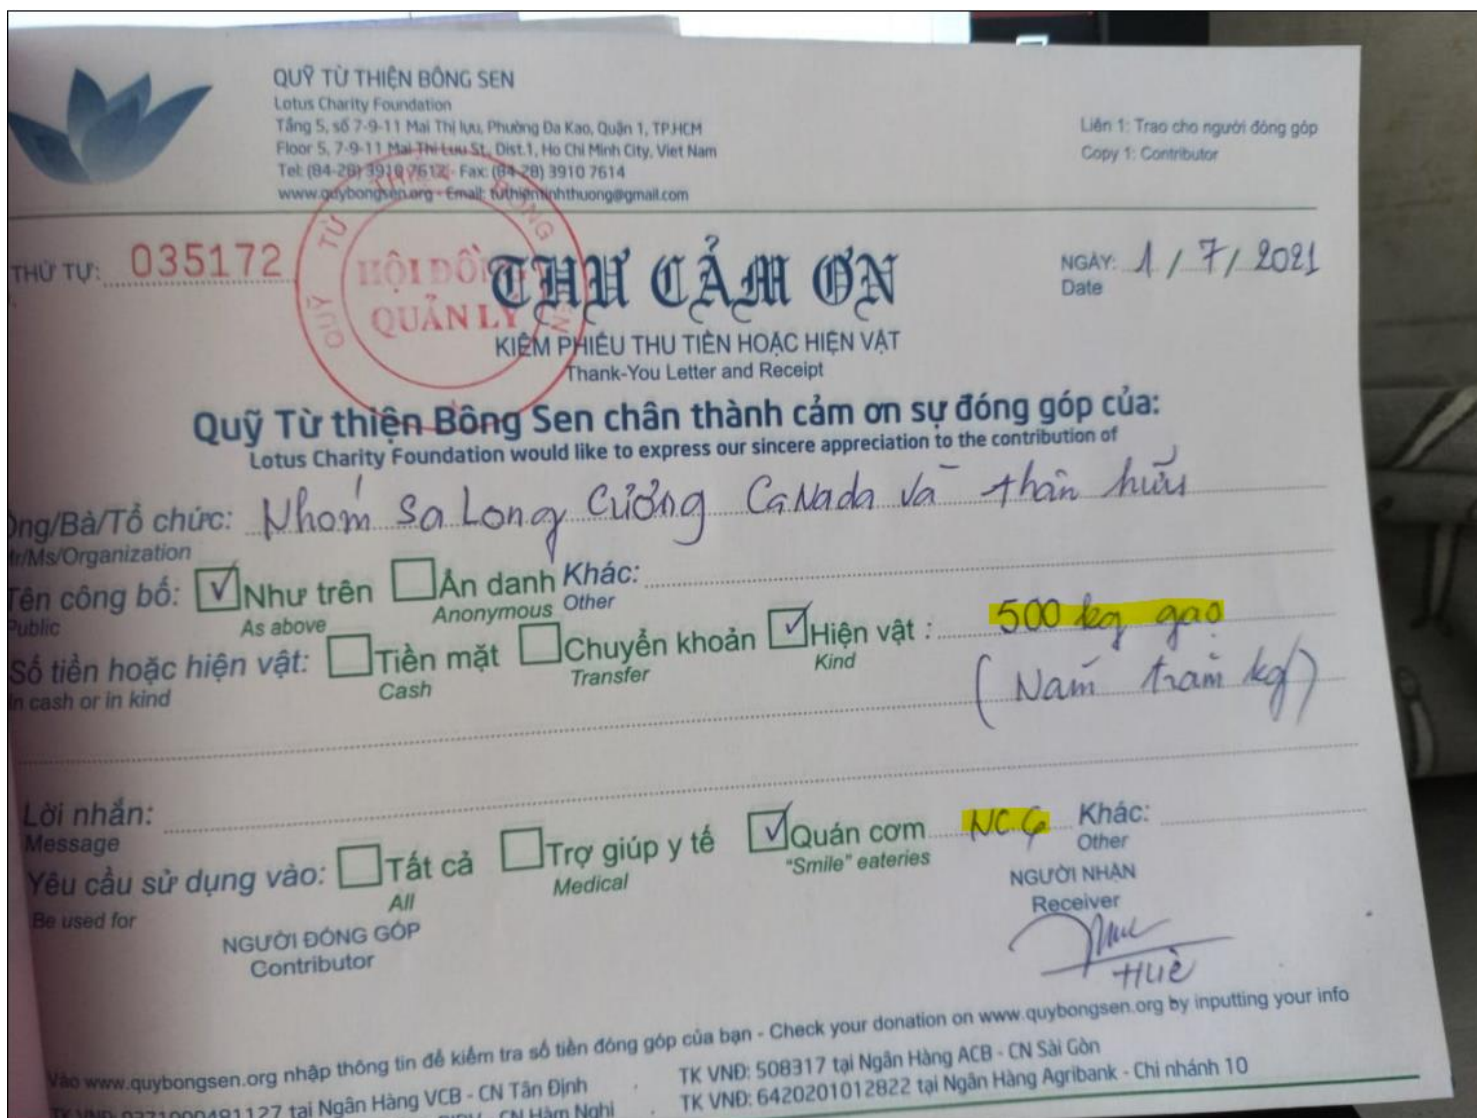 QUỸ TỪ THIỆN BÔNG SEN
Lotus Charity Foundation
Tầng 5, số 7-9-11 Mai Thị lựu, Phường Đa Kao, Quận 1, TP.HCM
Floor 5, 7-9-11 Mai Thi Luu St., Dist.1, Ho Chi Minh City, Viet Nam
Tel: (84-28) 3910 7612 - Fax: (84-28) 3910 7614
www.quybongsen.org - Email: tuthieninhthuong@gmail.com
Liên 1: Trao cho người đóng góp
Copy 1: Contributor
THỨ TỰ: 035172
QUỸ TỪ THIỆN BÔNG SEN
HỘI ĐỒNG
QUẢN LÝ
THƯ CẢM ƠN
NGÀY: 1 / 7 / 2021
Date
KIÊM PHIẾU THU TIỀN HOẶC HIỆN VẬT
Thank-You Letter and Receipt
Quỹ Từ thiện Bông Sen chân thành cảm ơn sự đóng góp của:
Lotus Charity Foundation would like to express our sincere appreciation to the contribution of
Ông/Bà/Tổ chức: Nhóm Sa Long Cương CaNada và thân hữu
Mr/Ms/Organization
Tên công bố: Như trên Ẩn danh Khác:
Public As above Anonymous Other
Số tiền hoặc hiện vật: Tiền mặt Chuyển khoản Hiện vật : 500 kg gạo
In cash or in kind Cash Transfer Kind
(Năm trăm kg)
Lời nhắn:
Message
Yêu cầu sử dụng vào: Tất cả Trợ giúp y tế Quán cơm NC6 Khác:
Be used for All Medical "Smile" eateries Other
NGƯỜI ĐÓNG GÓP
Contributor
NGƯỜI NHẬN
Receiver
Huê
Vào www.quybongsen.org nhập thông tin để kiểm tra số tiền đóng góp của bạn - Check your donation on www.quybongsen.org by inputting your info
TK VNĐ: 0371000491127 tại Ngân Hàng VCB - CN Tân Định
TK VNĐ: 508317 tại Ngân Hàng ACB - CN Sài Gòn
CN Hàm Nghi
TK VNĐ: 6420201012822 tại Ngân Hàng Agribank - Chi nhánh 10